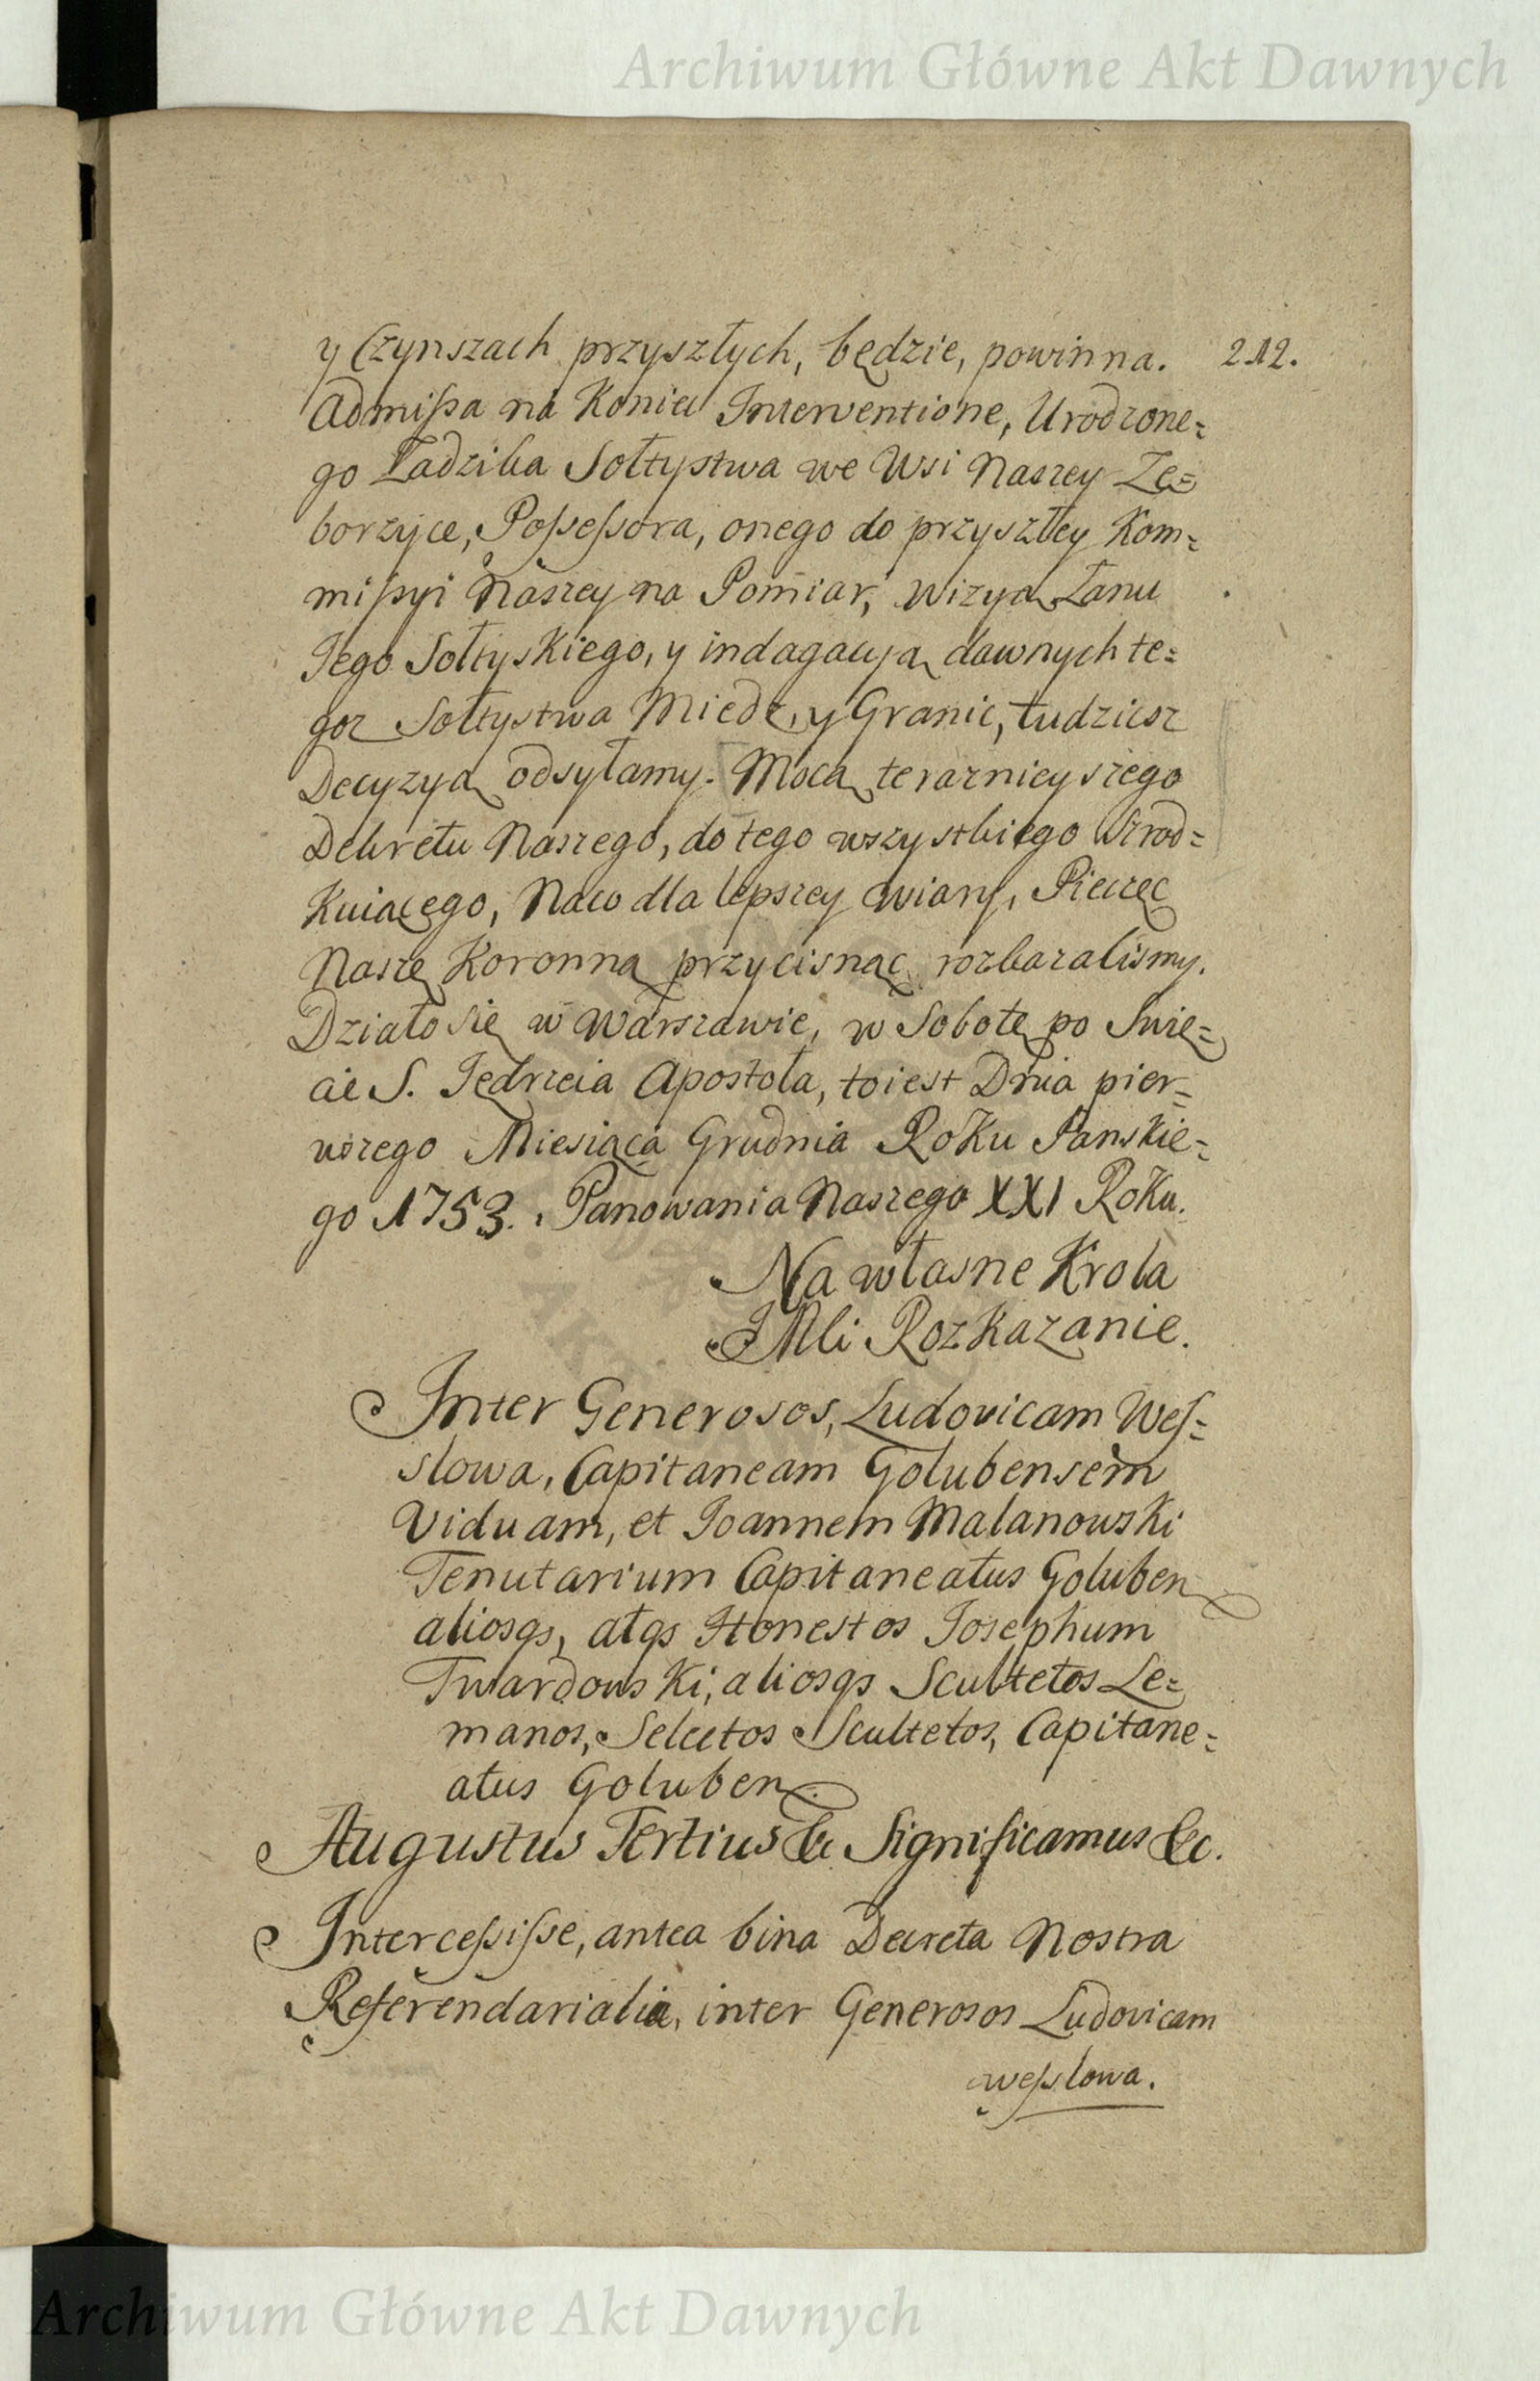 Archiwum Główne Akt Dawnych
y Czynszach przyszłych, będzie, powinna. 212.
Admissa na Koniec Interventione, Urodzone=
go Ladziba Sołtystwa we Wsi Naszey Ze=
borzyce, Possessora, onego do przyszłey Kom=
missyi Naszey na Pomiar, wizyą Łanu
Jego Sołtyskiego, y indagacyą dawnych te=
goz Sołtystwa Miedz, y Granic, tudziesz
Decyzyą odsyłamy. Mocą teraznieyszego
Dekretu Naszego, do tego wszystkiego Szrod=
Kuiącego, Naco dla lepszey wiary, Pieczęc
Naszę Koronną przycisnąc rozkazalismy.
Działo się w Warszawie, w Sobotę po Swię=
cie S. Jędrzeia Apostoła, toiest Dnia pier=
wszego Miesiąca Grudnia Roku Panskie=
go 1753. Panowania Naszego XXI Roku.
Na własne Krola
JMci Rozkazanie.
Inter Generosos, Ludovicam Wes=
slowa, Capitaneam Golubensem
Viduam, et Joannem Malanowski
Tenutarium Capitaneatus Goluben
aliosqs, atqs Honestos Josephum
Twardowski, aliosqs Scultetos Le=
manos, Selectos Scultetos, Capitane=
atus Goluben.
Augustus Tertius &c Significamus &c.
Intercessisse, antea bina Decreta Nostra
Referendarialia, inter Generosos Ludovicam
wesslowa.
Archiwum Główne Akt Dawnych